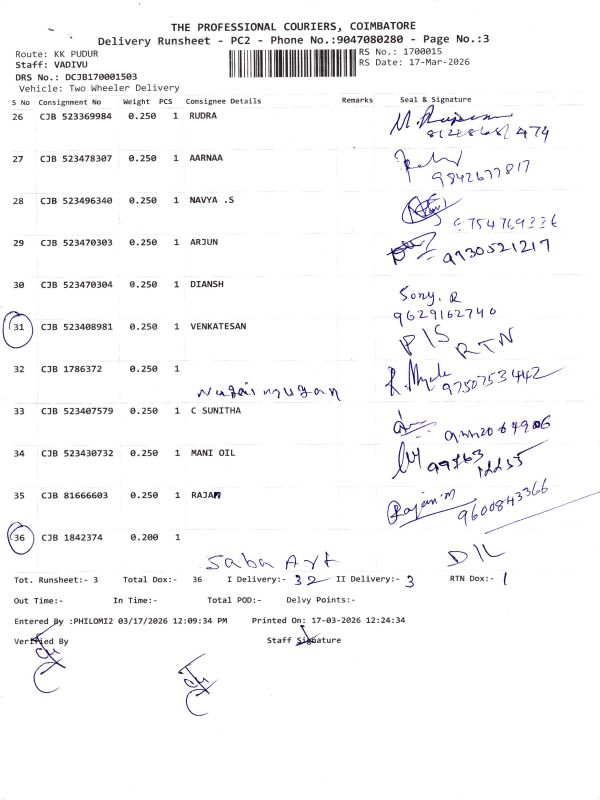 THE PROFESSIONAL COURIERS, COIMBATORE
Delivery Runsheet - PC2 - Phone No.:9047080280 - Page No.:3
Route: KK PUDUR RS No.: 1700015
Staff: VADIVU RS Date: 17-Mar-2026
DRS No.: DCJB170001503
Vehicle: Two Wheeler Delivery
S No Consignment No Weight PCS Consignee Details Remarks Seal & Signature
26 CJB 523369984 0.250 1 RUDRA
27 CJB 523478307 0.250 1 AARNAA
9842677817
28 CJB 523496340 0.250 1 NAVYA .S
9754769336
29 CJB 523470303 0.250 1 ARJUN 9730521217
30 CJB 523470304 0.250 1 DIANSH
Sony. R
9629162740
31 CJB 523408981 0.250 1 VENKATESAN P/S RTN
32 CJB 1786372 0.250 1
9750753442
33 CJB 523407579 0.250 1 C SUNITHA
34 CJB 523430732 0.250 1 MANI OIL
35 CJB 81666603 0.250 1 RAJAN
Rajan.M 9600843366
36 CJB 1842374 0.200 1
Saba Art D/L
Tot. Runsheet:- 3 Total Dox:- 36 I Delivery:- 32 II Delivery:- 3 RTN Dox:- 1
Out Time:- In Time:- Total POD:- Delvy Points:-
Entered By :PHILOMI2 03/17/2026 12:09:34 PM Printed On: 17-03-2026 12:24:34
Verified By Staff Signature